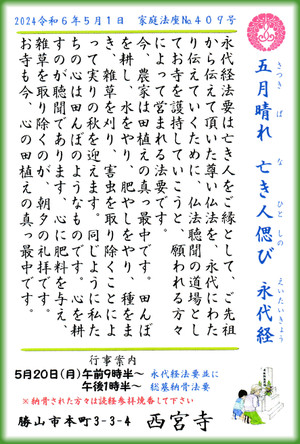 2024令和6年5月1日　家庭法座№409号
五月晴れ　亡き人偲び　永代経
さつき　ば　な　ひと　しの　えいたいきょう
永代経法要は亡き人をご縁として、ご先祖
から伝えて頂いた尊い仏法を、永代にわた
り伝えていくために、仏法聴聞の道場とし
てお寺を護持していこうと、願われる方々
によって営まれる法要です。
今、農家は田植えの真っ最中です。田んぼ
を耕し、水をやり、肥しをやり、種をま
き、雑草を刈り、害虫を取り除くことによ
って実りの秋を迎えます。同じように私た
ちの心は田んぼのようなものです。心を耕
すのが聴聞であります、心に肥料を与え、
雑草を取り除くのが、朝夕の礼拝です。
お寺も今、心の田植えの真っ最中です。
行事案内
5月20日(月)午前9時半～　永代経法要並に
午後1時半～　総墓納骨法要
＊納骨された方々は読経参拝焼香して下さい
勝山市本町3-3-4　西宮寺